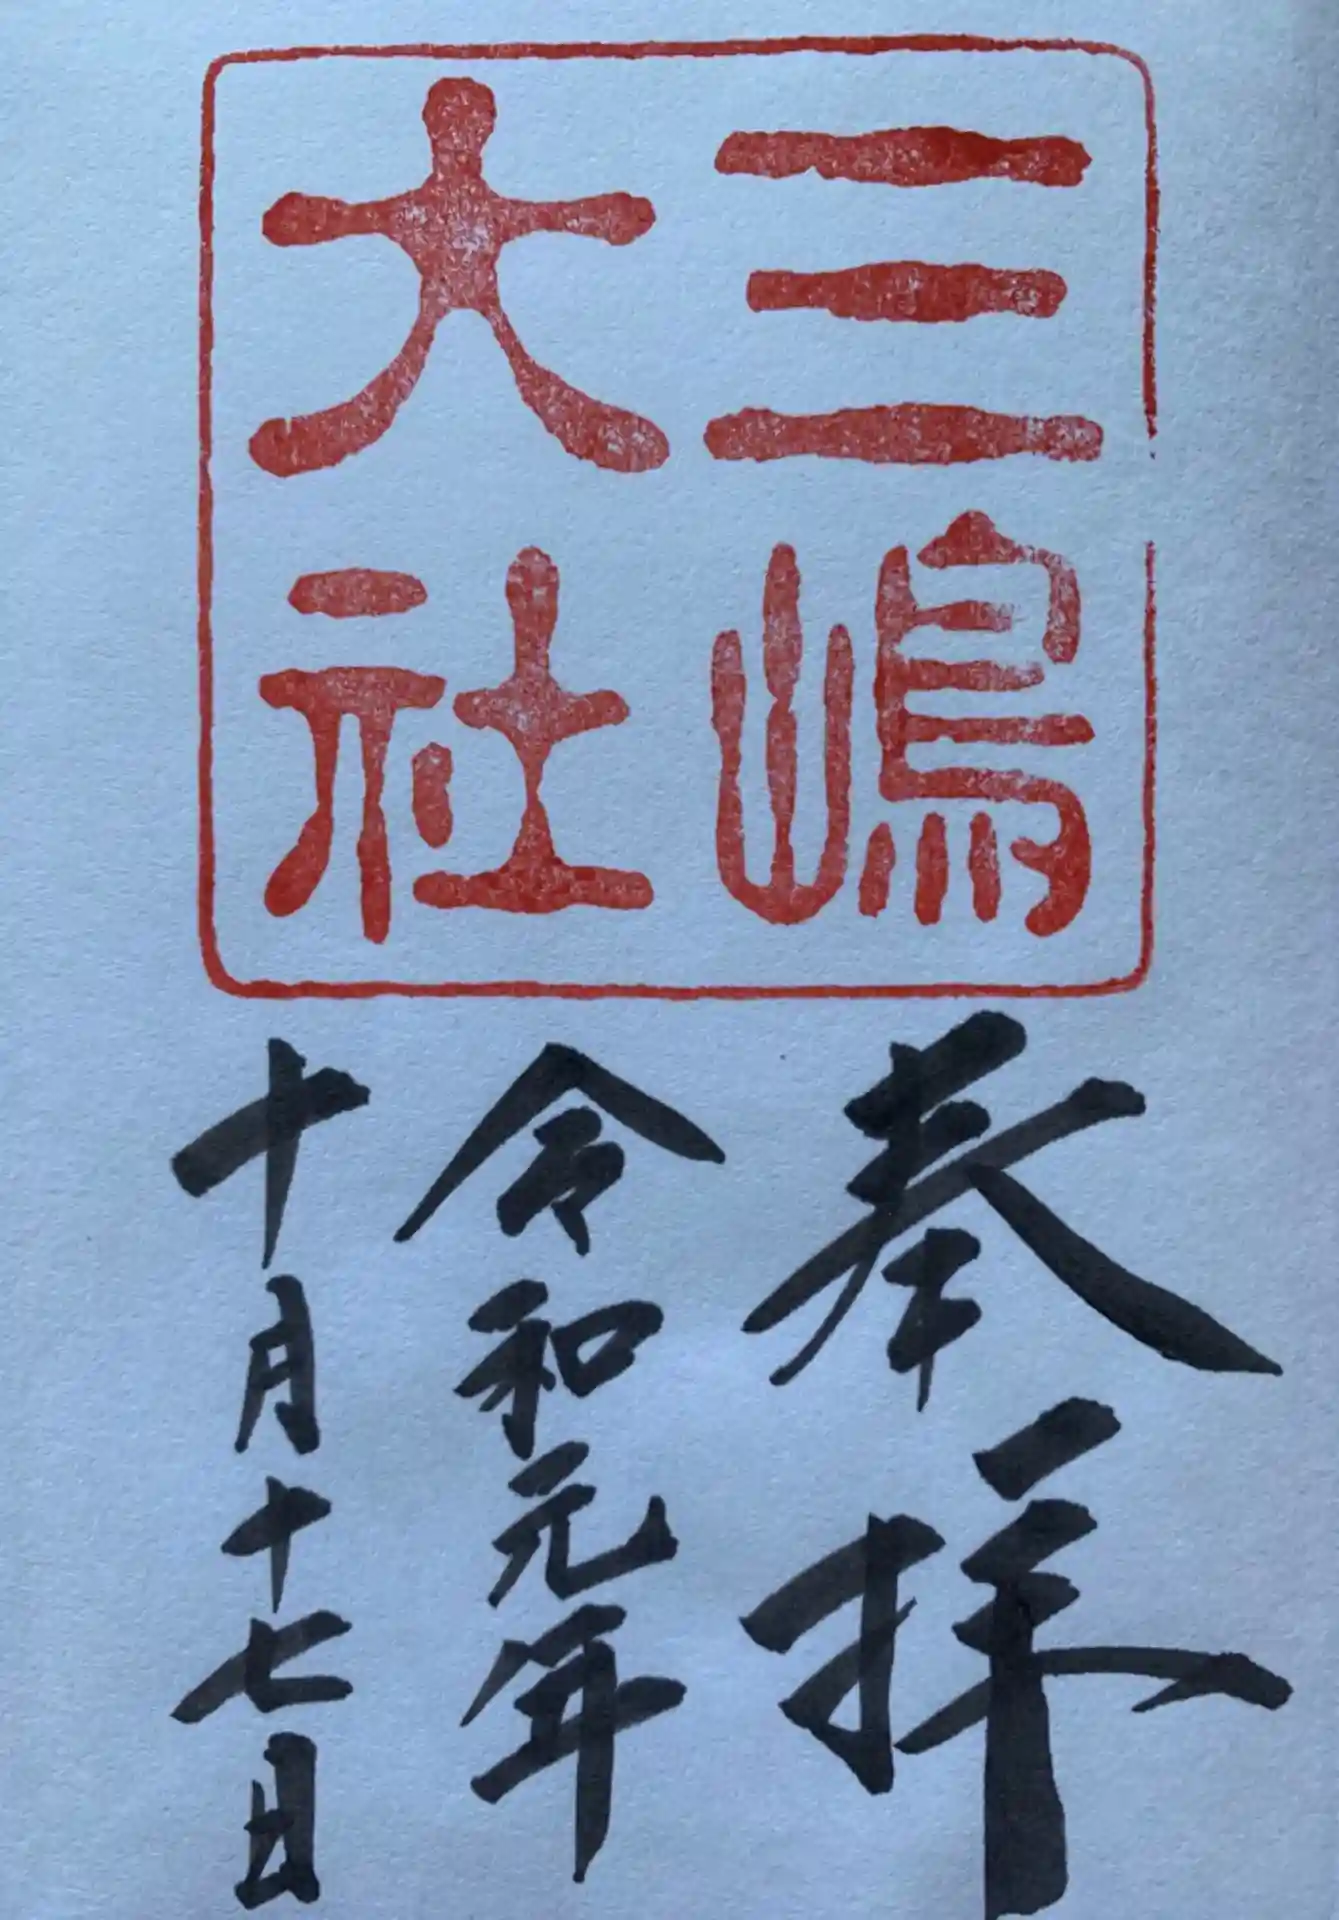 三嶋
大社
奉拝
令和元年
十月十七日